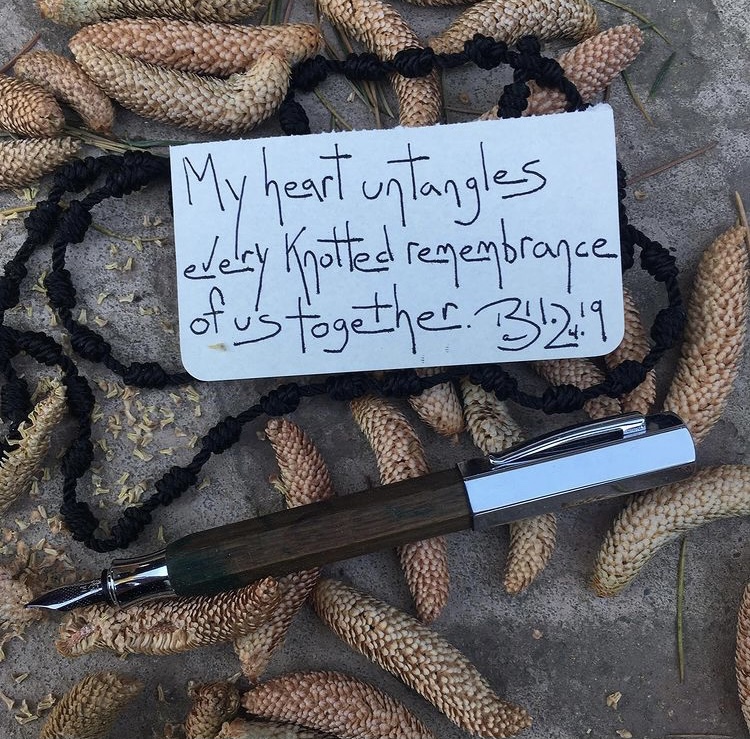 My heart untangles
every knotted remembrance
of us together.